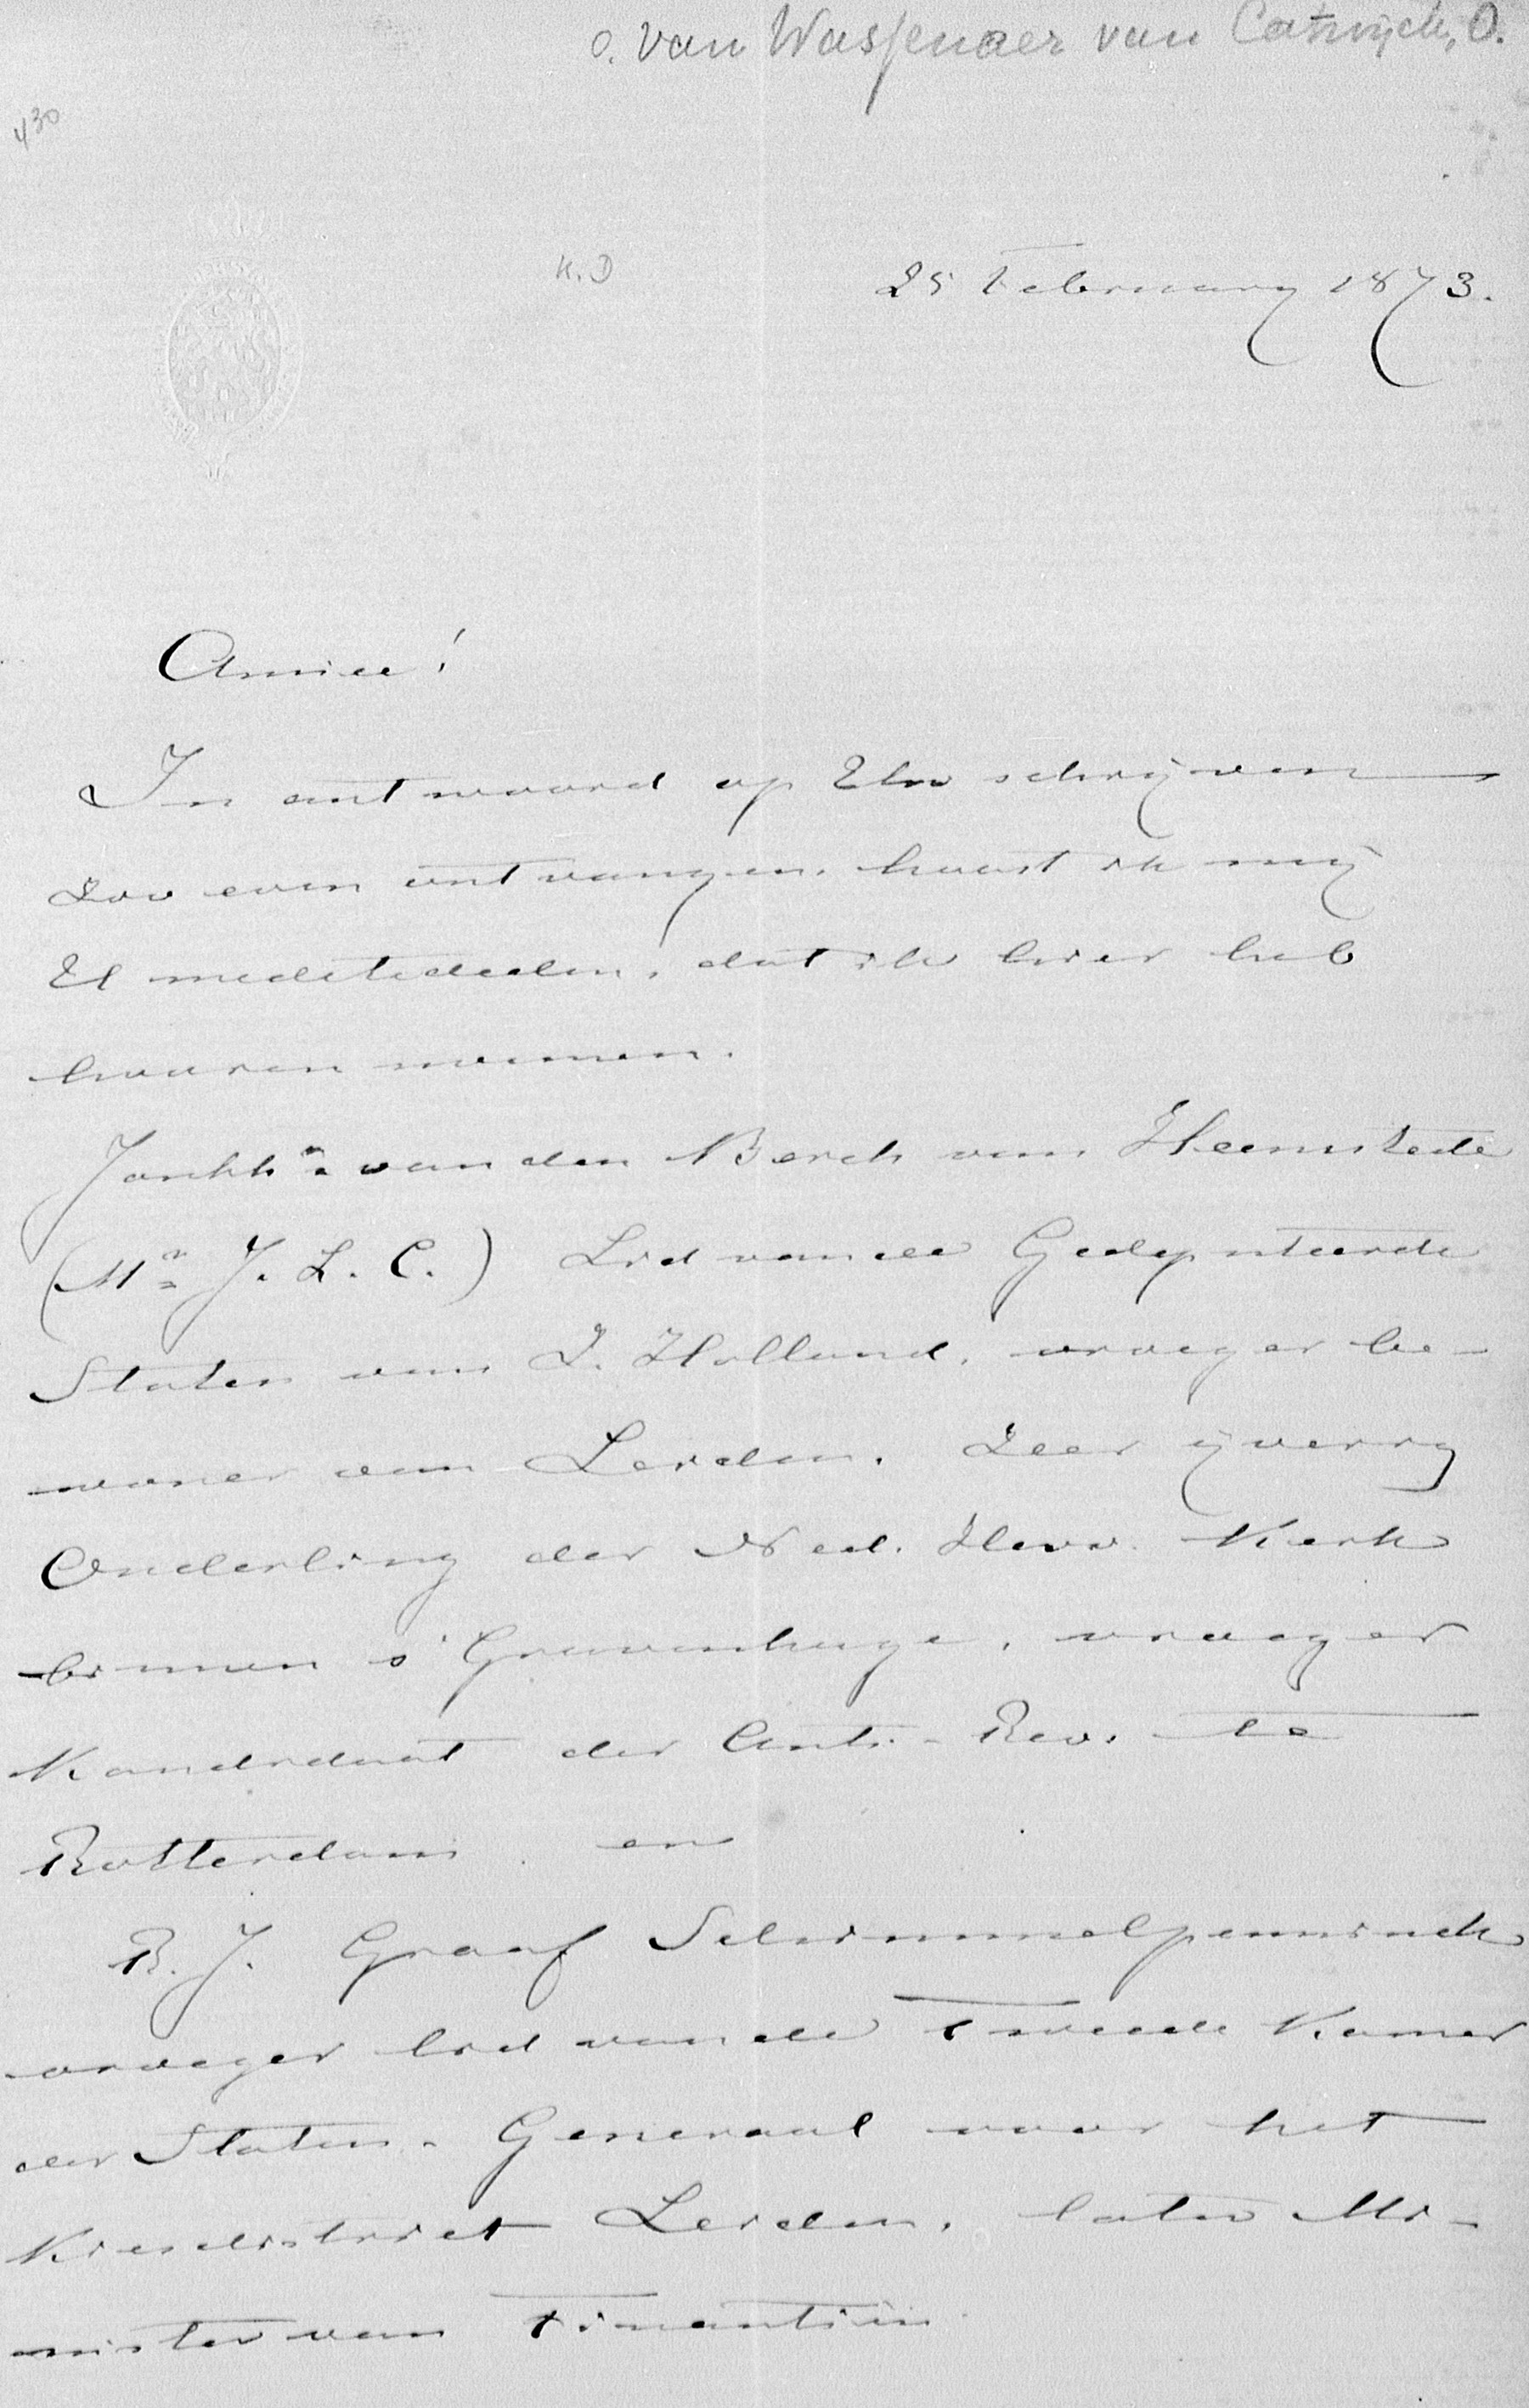 O. van Wassenaer van Catwijck, O.
430
K.D
25 February 1873.
Amice!
In antwoord op Uw schrijven
zoo even ontvangen, haast ik mij
U medetedeelen, dat ik hier heb
hooren noemen.
Jonkhr. van den Berch van Heemstede
(Mr. J. L. C.) Lid van de Gedeputeerde
Staten van Z. Holland, vroeger be-
woner van Leiden. Zeer ijverig
Ouderling der Ned. Herv. Kerk
binnen s' Gravenhage, vroeger
Kandidaat der Anti-Rev. te
Rotterdam en
R. J. Graaf Schimmelpenninck
vroeger lid van de Tweede Kamer
der Staten-Generaal voor het
Kiesdistrict Leiden, later Mi-
nister van Finantiën